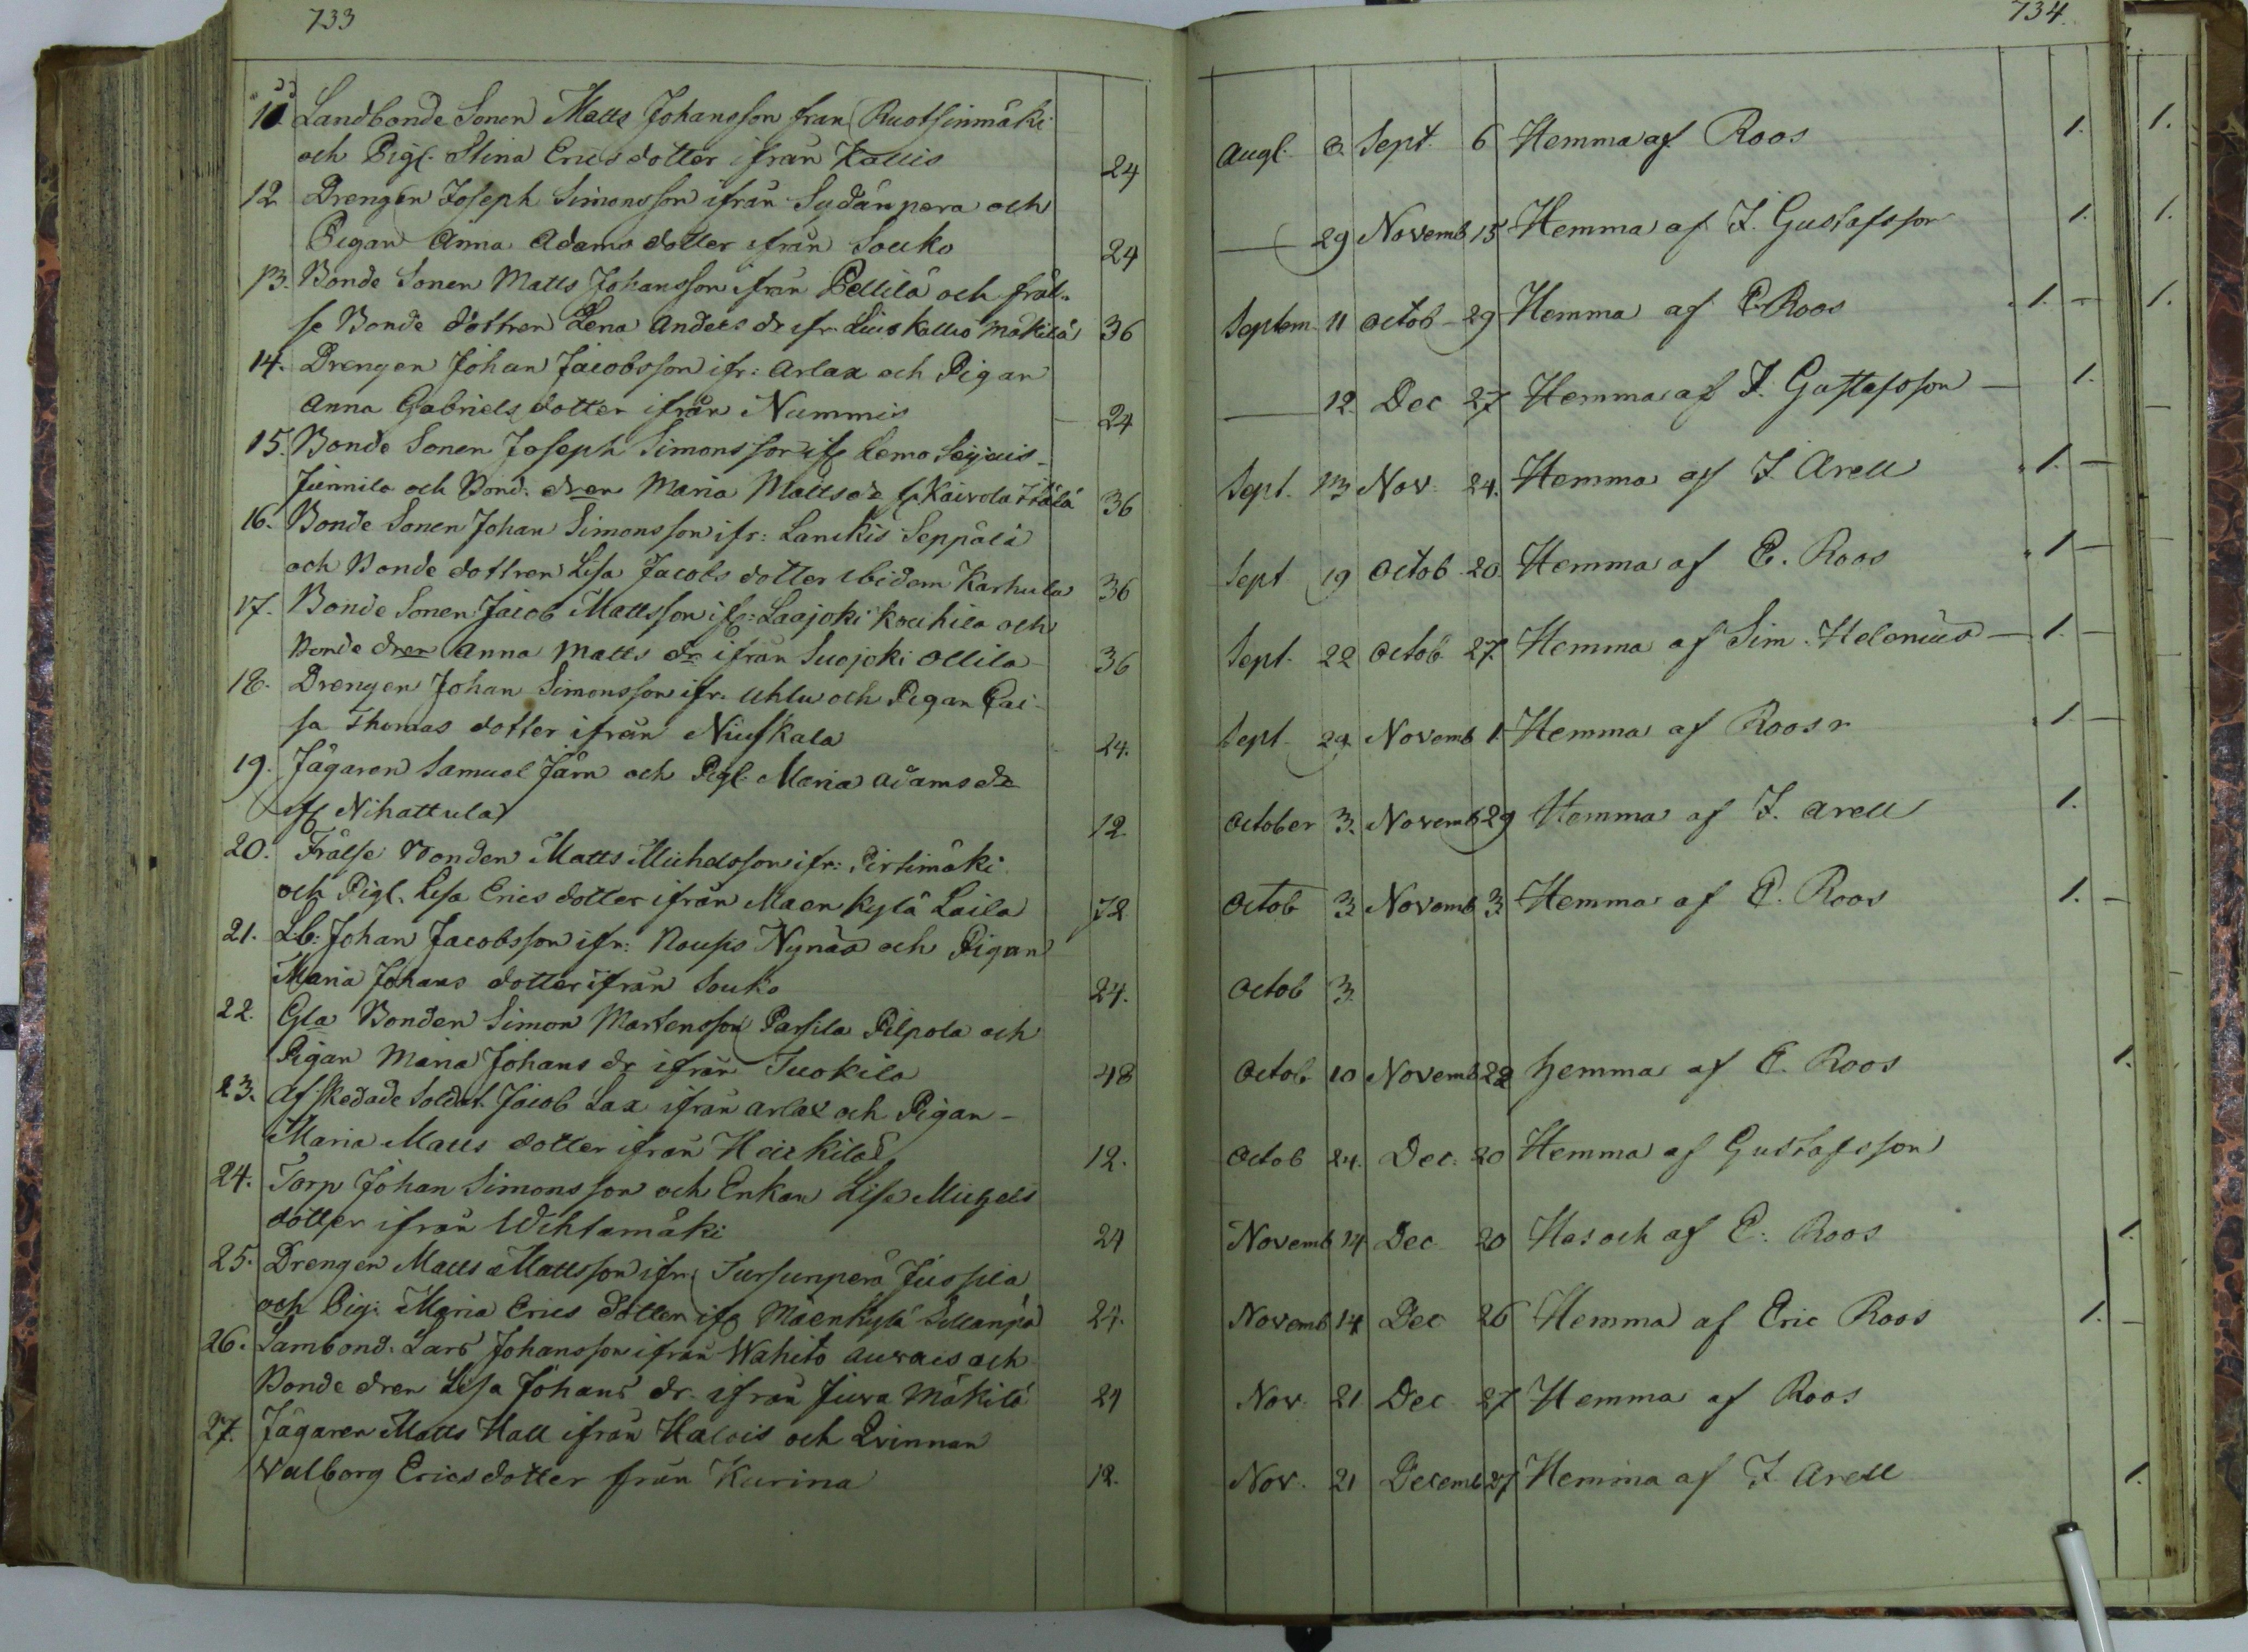 733
11. Landbonde Sonen Matts Johansson fran Ruotsinmäki
och Pig. Stina Erics dotter ifrån Kallis 24
12 Drengen Joseph Simonsson ifrån Sydänpera och
Pigan Anna Adams dotter ifrån Souko 24
13. Bonde Sonen Matts Johansson ifrån Pellilä och fräl-
se Bonde dottren Lena Anders dr ifr. Mäkilä 36
14. Drengen Johan Jacobsson ifr: Arlax och Pigan
Anna Gabriels dotter ifrån Nummis 24
15. Bonde Sonen Joseph Simonsson ifr Lemo Seijais
Junnila och Bond. dren Maria Matts dr fr Kaivola Itälä 36
16. Bonde Sonen Johan Simonsson ifr: Lanckis Seppälä
och Bonde dottren Lisa Jacobs dotter ibidem Karhula 36
17. Bonde Sonen Jacob Mattsson ifr: Laajoki Kouhila och
Bonde dren Anna Matts dr ifrån Suojoki Ollila 36
18. Drengen Johan Simonsson ifr. Uhlu och Pigan Cai-
sa Thomas dotter ifrån Niuskala 24.
19. Jägaren Samuel Järn och Pig. Maria Adams dr
ifr Nihattula 12
20. Frälse Bonden Matts Michelsson ifr: Pirtimäki
och Pig. Lisa Erics dotter ifrån Maenkylä Laila 72
21. Lb: Johan Jacobsson ifr: Nynäs och Pigan
Maria Johans dotter ifrån Souko 24.
22. Gla Bonden Simon Martensson Parsila Pilpola och
Pigan Maria Johans dr ifrån Tuokila 48
23. Afskedade Soldat. Jacob Lax ifrån Arlax och Pigan
Maria Matts dotter ifrån Heikilä 12.
24. Torp Johan Simonsson och Enkan Lisa Michels
dotter ifrån Wihtamäki 24
25. Drengen Matts Mattsson ifr. Tursunperä Jussila
och Pig: Maria Erics dotter ifr Mäenkylä Sillanpä 24.
26. Lambond. Lars Johansson ifrån Wahito Auvais och
Bonde dren Lisa Johans dr. ifrån Juva Mäkilä 24
27. Jägaren Matts Hall ifrån Halois och Qvinnan
Valborg Ericsdotter från Kurina 12.
734.
Aug. 8 Sept. 6 Hemma af Roos 1. 1.
— 29 Novemb 15 Hemma af J. Gustafsson 1. 1.
Septem 11 Octob 29 Hemma af E Roos 1. — 1.
— 12 Dec 27 Hemma af J. Gustafsson — 1.
Sept. 13 Nov. 24. Hemma af J. Arell 1. —
Sept 19 Octob 20 Hemma af E. Roos 1 —
Sept. 22 Octob 27. Hemma af Sim. Helenius — 1. —
Sept 29 Novemb 1. Hemma af Roos 1 —
October 3. Novemb 29 Hemma af J. Arell 1.
Octob 3 Novemb 3 Hemma af E. Roos 1. —
Octob 3
Octob 10 Novemb 22 hemma af E. Roos 1.
Octob 24. Dec. 20 Hemma af Gustafsson
Novemb 14 Dec 20 Has och af E. Roos 1.
Novemb 14 Dec 26 Hemma af Eric Roos 1. —
Nov. 21 Dec 27 Hemma af Roos
Nov. 21 Decemb 27 Hemma af J. Arell 1.